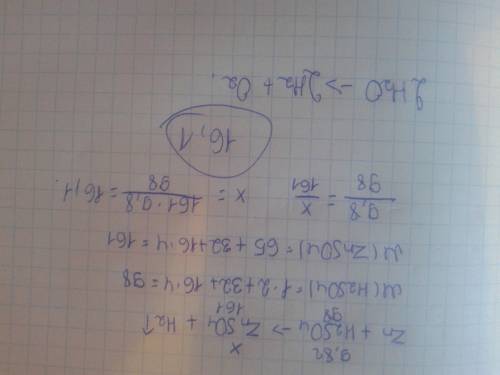 9,8г x
Zn + H2SO4 -> ZnSO4 + H2↑
98 161
M(H2SO4) = 1·2+32+16·4 = 98
M(ZnSO4) = 65+32+16·4 = 161
9,8/98 = x/161 x = 161·9,8/98 = 16,1.
16,1
2H2O -> 2H2 + O2.